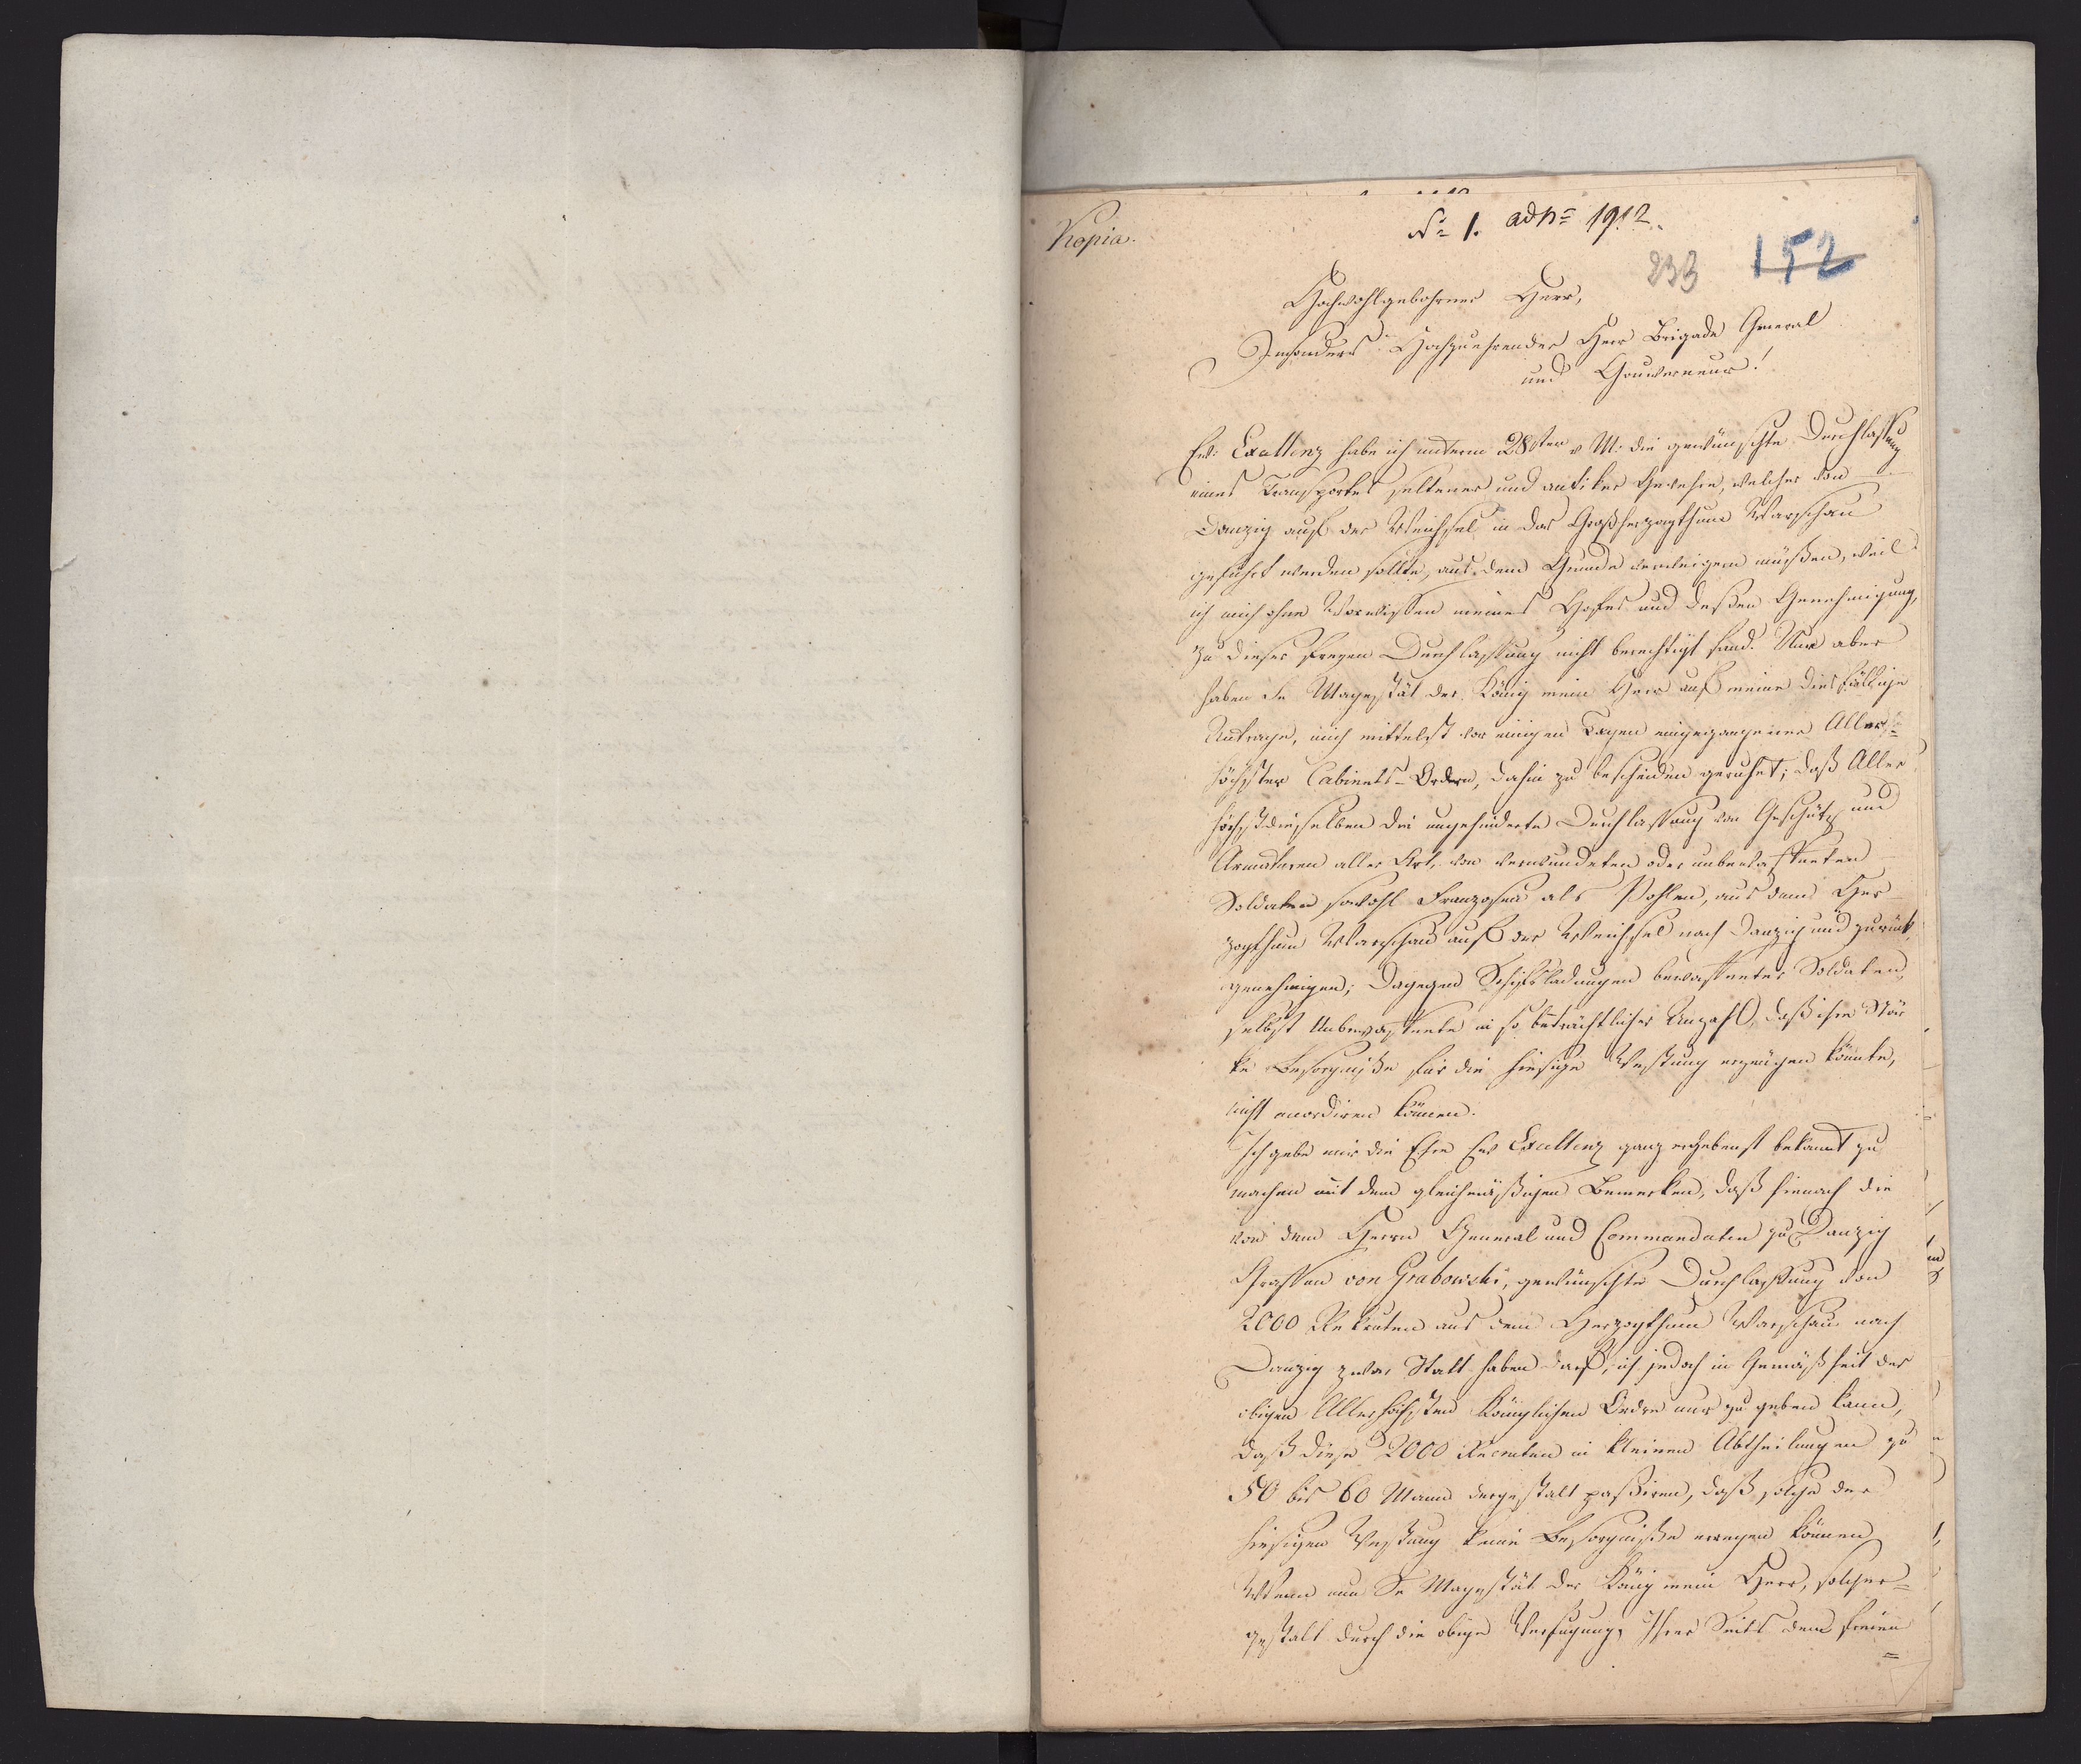 Kopia.
No 1. ad No 1912.
233 152
Hochwohlgebohrner Herr,
Insonders Hochzuehrender Herr Brigade General
und Gouverneur!
Ew: Excellenz habe ich unterm 28sten v M. die gewünschte Durchlaßung
eines Transportes seltener und antiker Gewehre, welcher von
Danzig auf der Weichsel in das Großherzogthum Warschau
geführt werden sollte, aus dem Grunde verweigern müßen, weil
ich mich ohne Vorwißen meines Hofes und deßen Genehmigung,
zu dieser freyen Durchlaßung nicht berechtigt fand. Nun aber
haben Se Mayestät der König mein Herr auf meine diesfällige
Anfrage, mich mittelst vor einigen Tagen eingegangener Aller-
höchster Cabinets-Ordre, dahin zu bescheiden geruhet; daß Aller
höchstdieselben die ungehinderte Durchlaßung von Geschütz und
Armaturen aller Art, von verwundeten oder unbewaffneten
Soldaten sowohl Franzosen als Pohlen, aus dem Her-
zogthum Warschau auf der Weichsel nach Danzig und zurück,
genehmigen; dagegen Schiffsladungen bewaffneter Soldaten,
selbst Unbewaffnete in so beträchtlicher Anzahl, daß ihre Stär
ke Besorgniße für die hiesige Vestung erzeugen könnte,
nicht accordiren können.
Ich gebe mir die Ehre Ew Excellenz ganz ergebenst bekannt zu
machen mit dem gleichmäßigen Bemerken, daß hienach die
von dem Herrn General und Commendaten zu Danzig
Graffen von Grabowski, gewünschte Durchlaßung von
2000 Rekruten aus dem Herzogthum Warschau nach
Danzig zwar Statt haben darf, ich jedoch in Gemäßheit der
obigen Allerhöchsten Königlichen Ordre nur zu geben kann,
daß diese 2000 Recruten in kleinen Abtheilungen zu
50 bis 60 Mann dergestalt paßiren, daß solche der
hiesigen Vestung keine Besorgniße erregen können
Wenn nun Se Mayestät der König mein Herr, solcher-
gestalt durch die obige Verfügung, Ihrer Seits dem freien